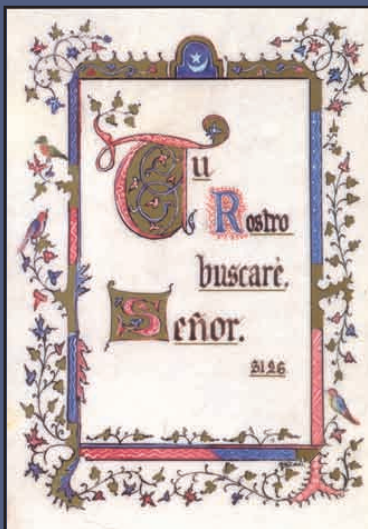 Tu
Rostro
buscaré.
Señor.